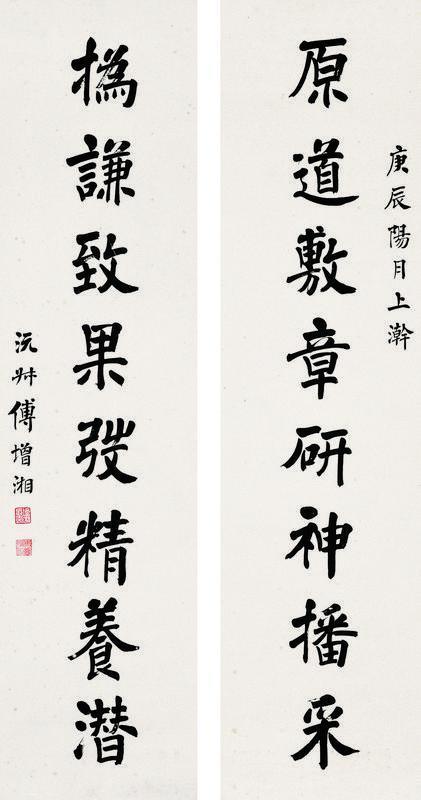 庚辰陽月上澣
原道敷章研神播采
撝謙致果弢精養潛
沅叔傅增湘